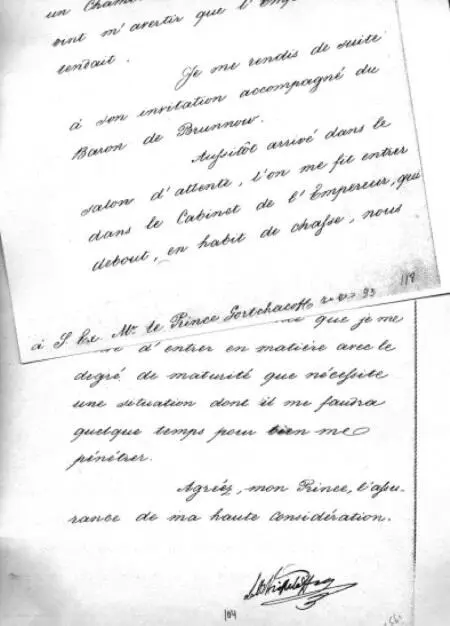 un Cham
vint m'avertir que l'Emp
tendait.
Je me rendis de suite
à son invitation accompagné du
Baron de Brunnow.
Aussitôt arrivé dans le
salon d'attente, l'on me fit entrer
dans le Cabinet de l'Empereur, qui
debout, en habit de chasse, nous
118
à S. Ex. Mr. le Prince Gortchacoff
que je me
d'entrer en matière avec le
degré de maturité que nécessite
une situation dont il me faudra
quelque temps pour bien me
pénétrer.
Agréez, mon Prince, l'assu-
rance de ma haute considération.
104